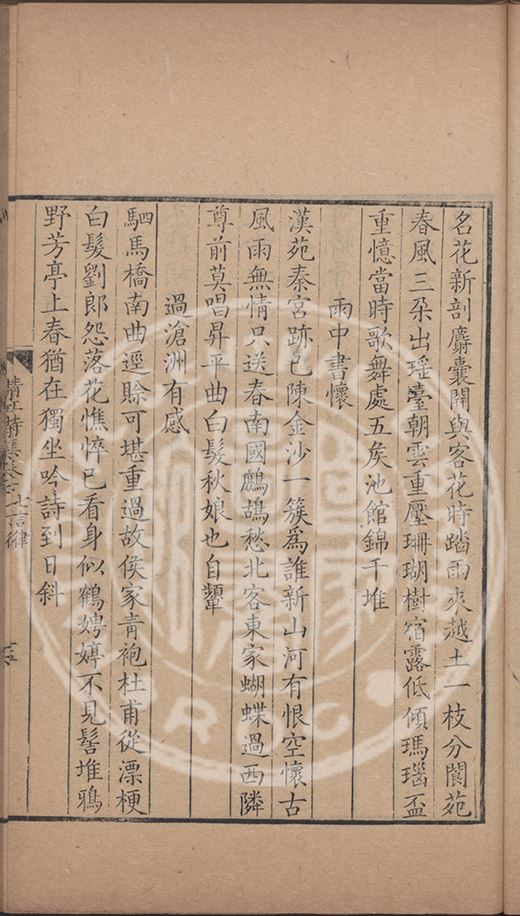 名花新剖麝囊開與客花時踏雨來越土一枝分閬苑
春風三朶出瑤臺朝雲重壓珊瑚樹宿露低傾瑪瑙盃
重憶當時歌舞處五矦池館錦千堆
雨中書懷
漢苑秦宮跡已陳金沙一簇爲誰新山河有恨空懷古
風雨無情只送春南國鷓鴣愁北客東家蝴蝶過西隣
尊前莫唱昇平曲白髮秋娘也自顰
過滄洲有感
駟馬橋南曲逕賖可堪重過故侯家靑袍杜甫從漂梗
白髮劉郎怨落花憔悴已看身似鶴娉婷不見髻堆鴉
野芳亭上春猶在獨坐吟詩到日斜
清江詩集卷 七言律